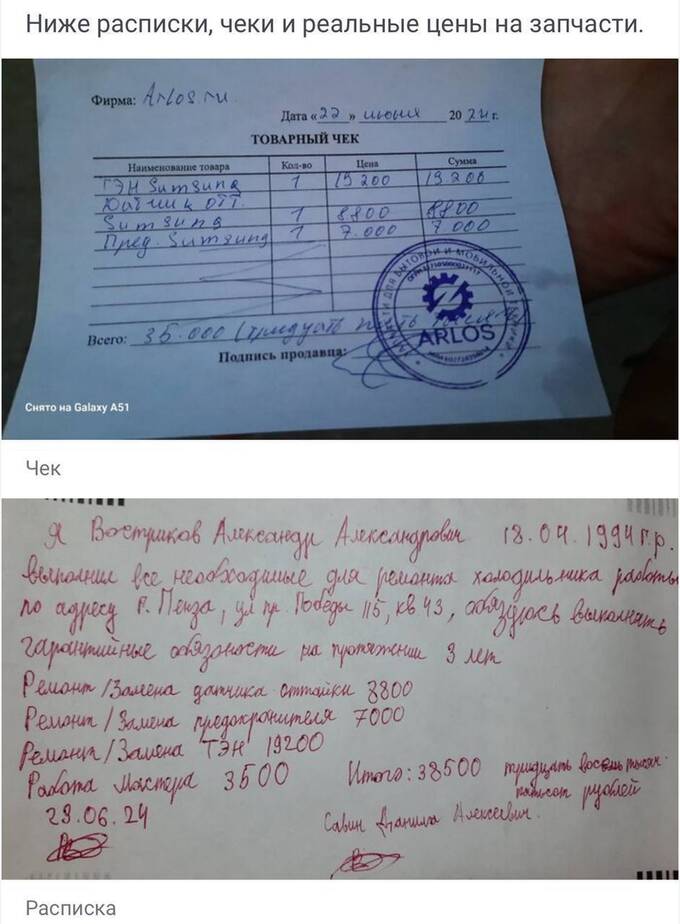 Ниже расписки, чеки и реальные цены на запчасти.
Фирма: Arlos.ru
Дата «22» июня 2024 г.
ТОВАРНЫЙ ЧЕК
Наименование товара Кол-во Цена Сумма
ТЭН Sumsung 1 19200 19.200
Датчик отт.
Sumsung 1 8800 8800
Пред. Sumsung 1 7.000 7000
ARLOS
Всего: 35.000 (тридцать пять
Подпись продавца:
Снято на Galaxy A51
Чек
Я Востриков Александр Александрович 18.04.1994 г.р.
выполнил все необходимые для ремонта холодильника работы
по адресу г. Пенза, ул пр. Победы 115, кв 43, обязуюсь выполнять
гарантийные обязоности на протяжении 3 лет
Ремонт/Замена датчика оттайки 8800
Ремонт/Замена предохронителя 7000
Ремонт/Замена ТЭН 19200
Работа мастера 3500 Итого: 38500 тридцать восемь тысяч
пятьсот рублей
29.06.24 Савин Данила Алексеевич.
Расписка